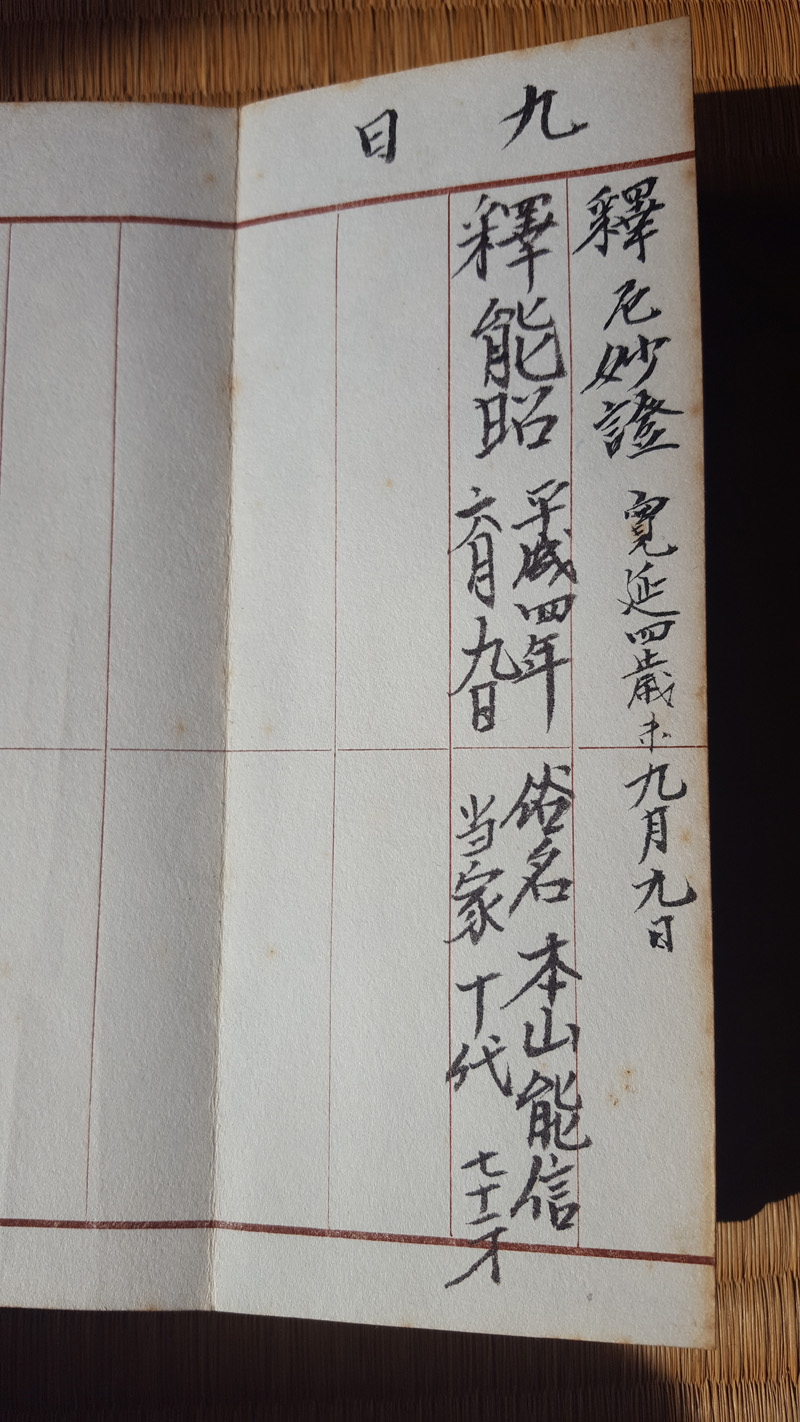 九日
釋尼妙證 寛延四歳未九月九日
釋能昭
平成四年
六月九日
俗名 本山能信
当家 十代 七十二才